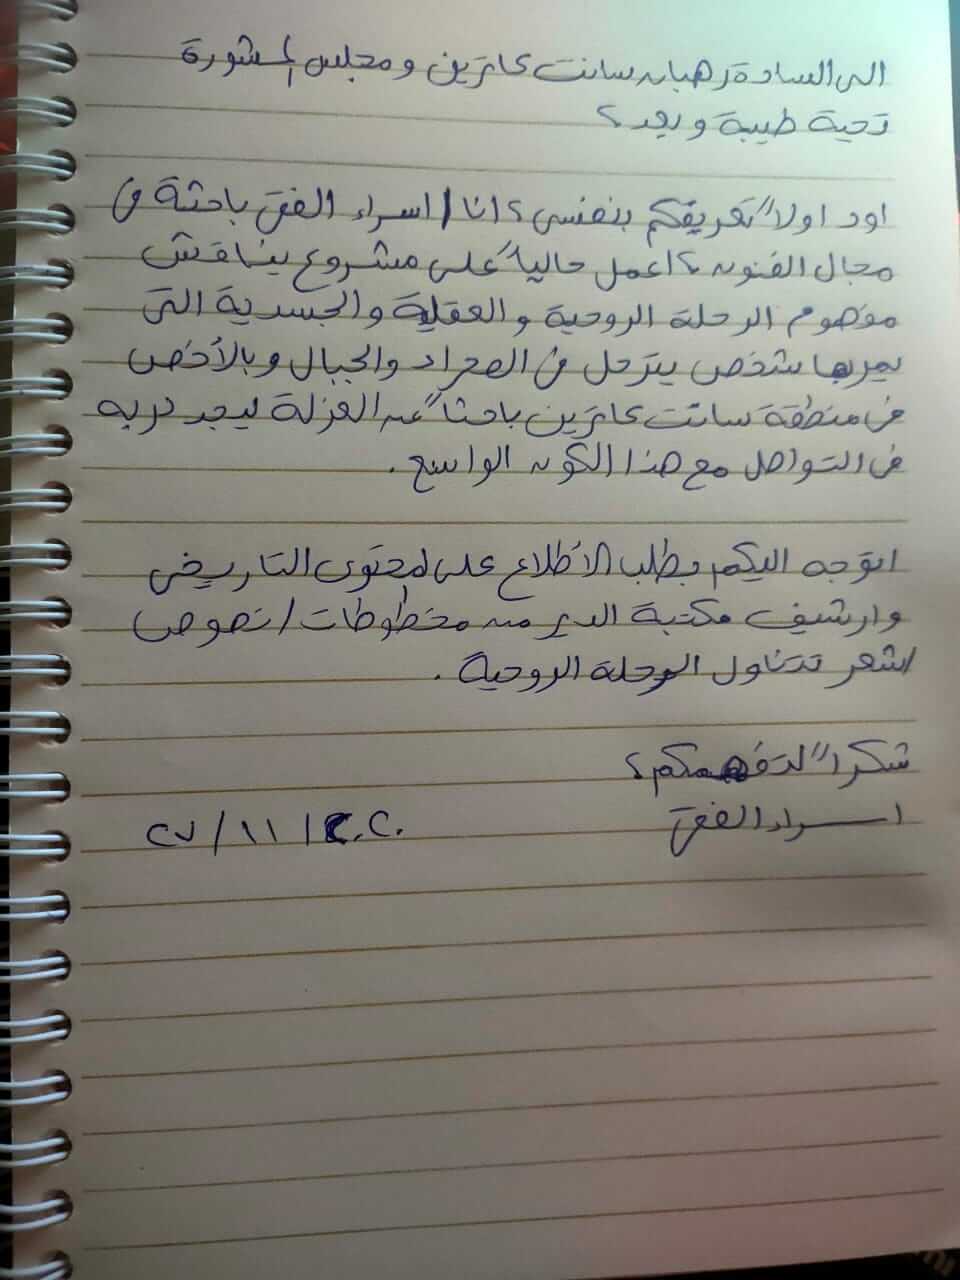 الى السادة رهبان سانت كاترين ومجلس المشورة
تحية طيبة وبعد؟
اود اولاً تعريفكم بنفسى؟ انا / اسراء الفقى باحثة فى
مجال الفنون؟ اعمل حالياً على مشروع يناقش
مفهوم الرحلة الروحية والعقلية والجسدية التى
يمر بها شخص يترحل فى الصحراء والجبال وبالأخص
فى منطقة سانت كاترين باحثاً عن العزلة ليجد دربه
فى التواصل مع هذا الكون الواسع.
اتوجه اليكم بطلب الاطلاع على المحتوى التاريخى
وارشيف مكتبة الدير من مخطوطات / نصوص
/ شعر تتناول الرحلة الروحية.
شكراً لتفهمكم؟
اسراء الفقى
٢٠٢٠ / ١١ /